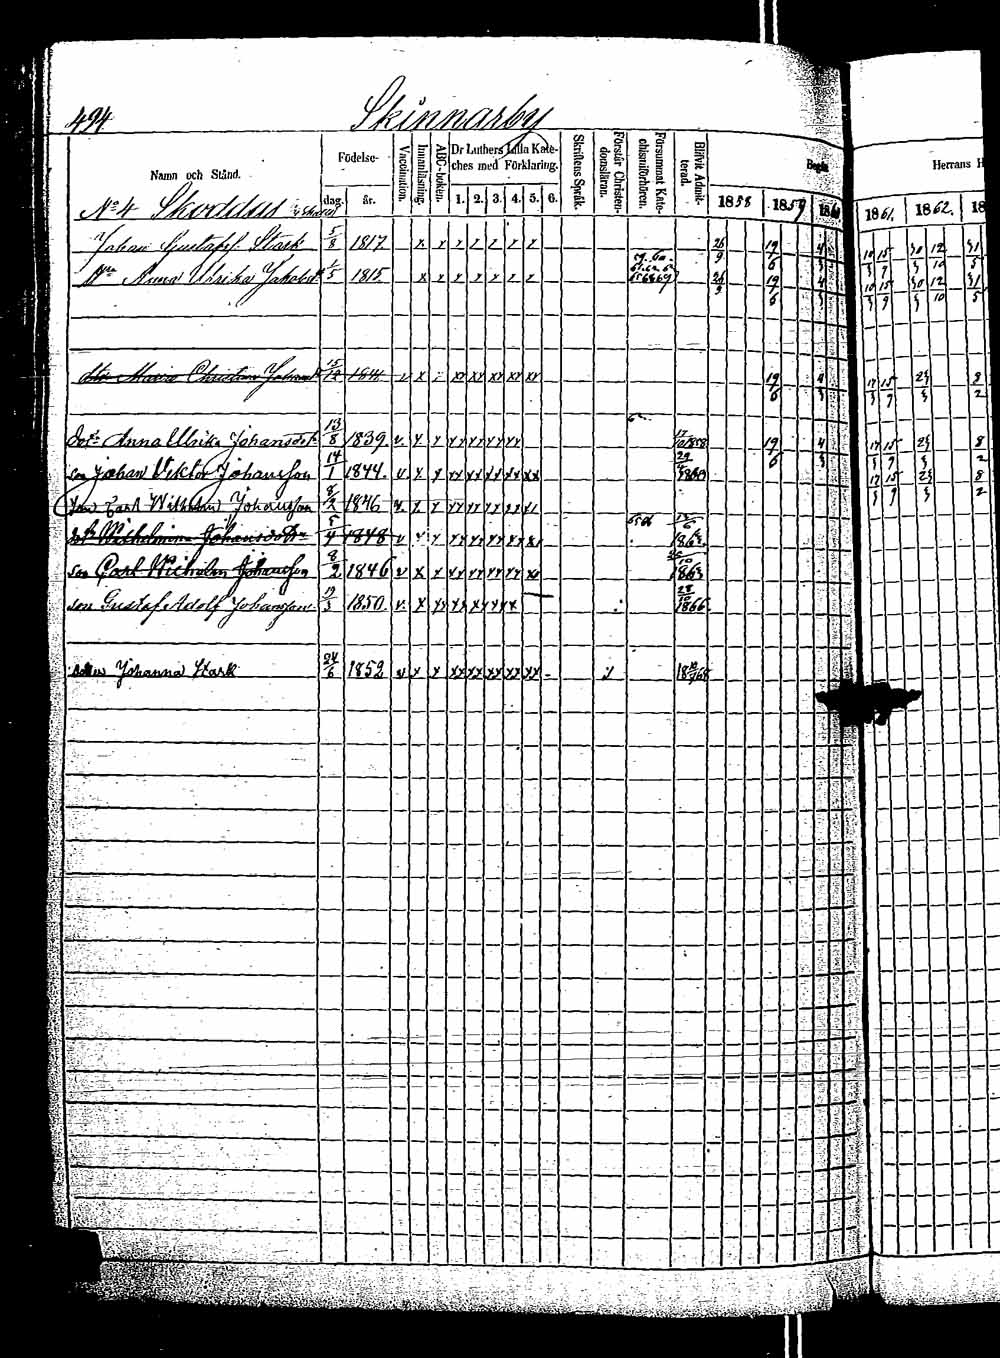 494 Skinnarby
Namn och Stånd. Födelse- dag. år. Vaccination. Innanläsning. ABC-boken. Dr Luthers Lilla Kateches med Förklaring. 1. 2. 3. 4. 5. 6. Skriftens Språk. Förstår Christendomsläran. Försummat Katechismiförhören. Blifvit Admitterad. Begått Herrans H
1858 1859 1860 1861. 1862. 18
No 4 Skoddus
Johan Gustafsf. Stark 5/8 1817 x x x x x x x 26/9 19/6 4/3 10/3 15/9 30/3 12/10 31/5
Hu Anna Ulrika Jakobsd 1/5 1815 x x x x x x x 26/9 19/6 4/3 10/3 15/9 30/3 12/10 31/5
dotr Maria Christina Johansd 15/12 1841 v x xx xx xx xx xx 19/6 4/3 17/3 15/9 23/3 8/2
dotr Anna Ulrika Johansdotr 13/8 1839. v. x x xx xx xx xx 17/10 1858 19/6 4/3 17/3 15/9 23/3 8/2
son Johan Viktor Johansson 14/1 1844. v x x xx xx xx xx xx 17/3 15/9 23/3 8/2
son Carl Wilhelm Johansson 8/2 1846 v. x x xx xx xx xx
dotr Wilhelmina Johansdotr 5/4 1848 v x x xx xx xx xx
son Carl Wilhelm Johansson 8/2 1846 v x x xx xx xx xx xx 1863
son Gustaf Adolf Johansson 1850. v. x xx xx xx xx 28/10 1866
dotter Johanna Stark 24/6 1852 v x x xx xx xx xx xx - x